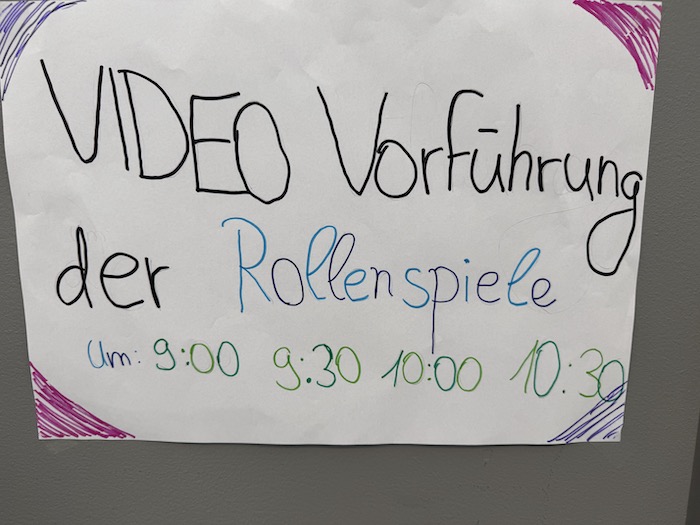 VIDEO Vorführung
der Rollenspiele
um: 9:00 9:30 10:00 10:30